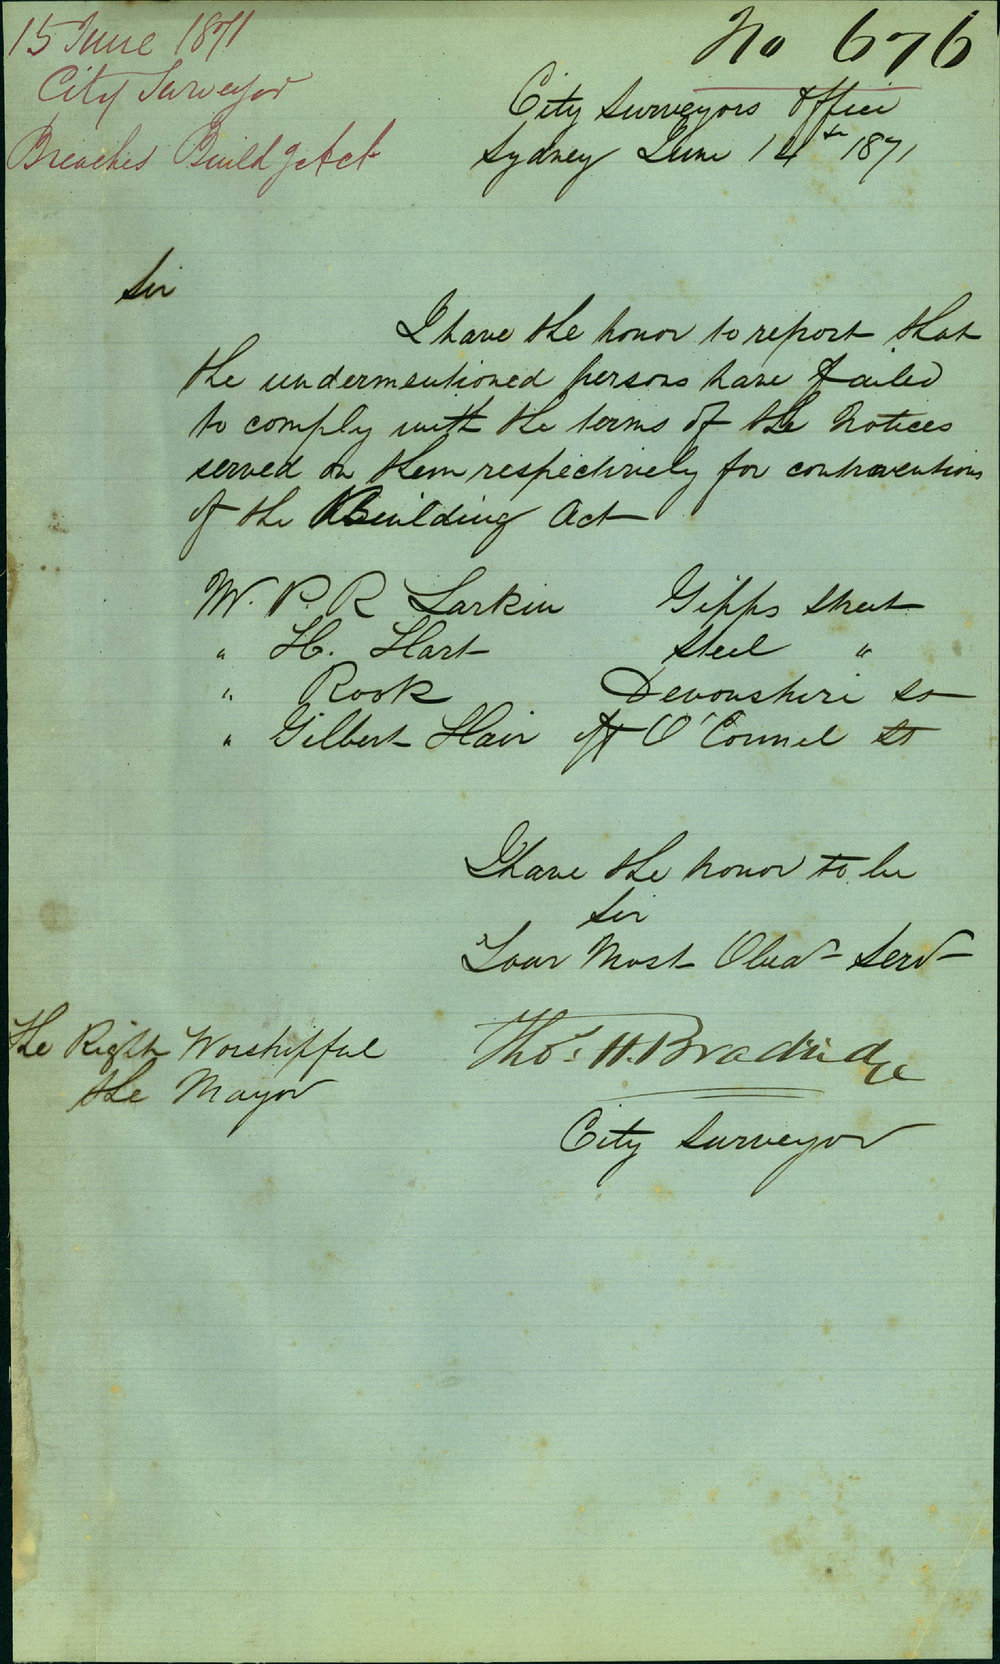 15 June 1871
City Surveyor
Breaches Buildg Act
No 676
City Surveyors Office
Sydney June 14th 1871
Sir
I have the honor to report that
the undermentioned persons have failed
to comply with the terms of the Notices
served on them respectively for contraventions
of the Building Act
W. P. R Larkin Gipps Street
" H. Hart Steel "
" Rook Devonshire So
" Gilbert Hair off O'Connel St
I have the honor to be
Sir
Your Most Obed Serv
Thos. H. Bradridge
City Surveyor
The Right Worshipful
the Mayor